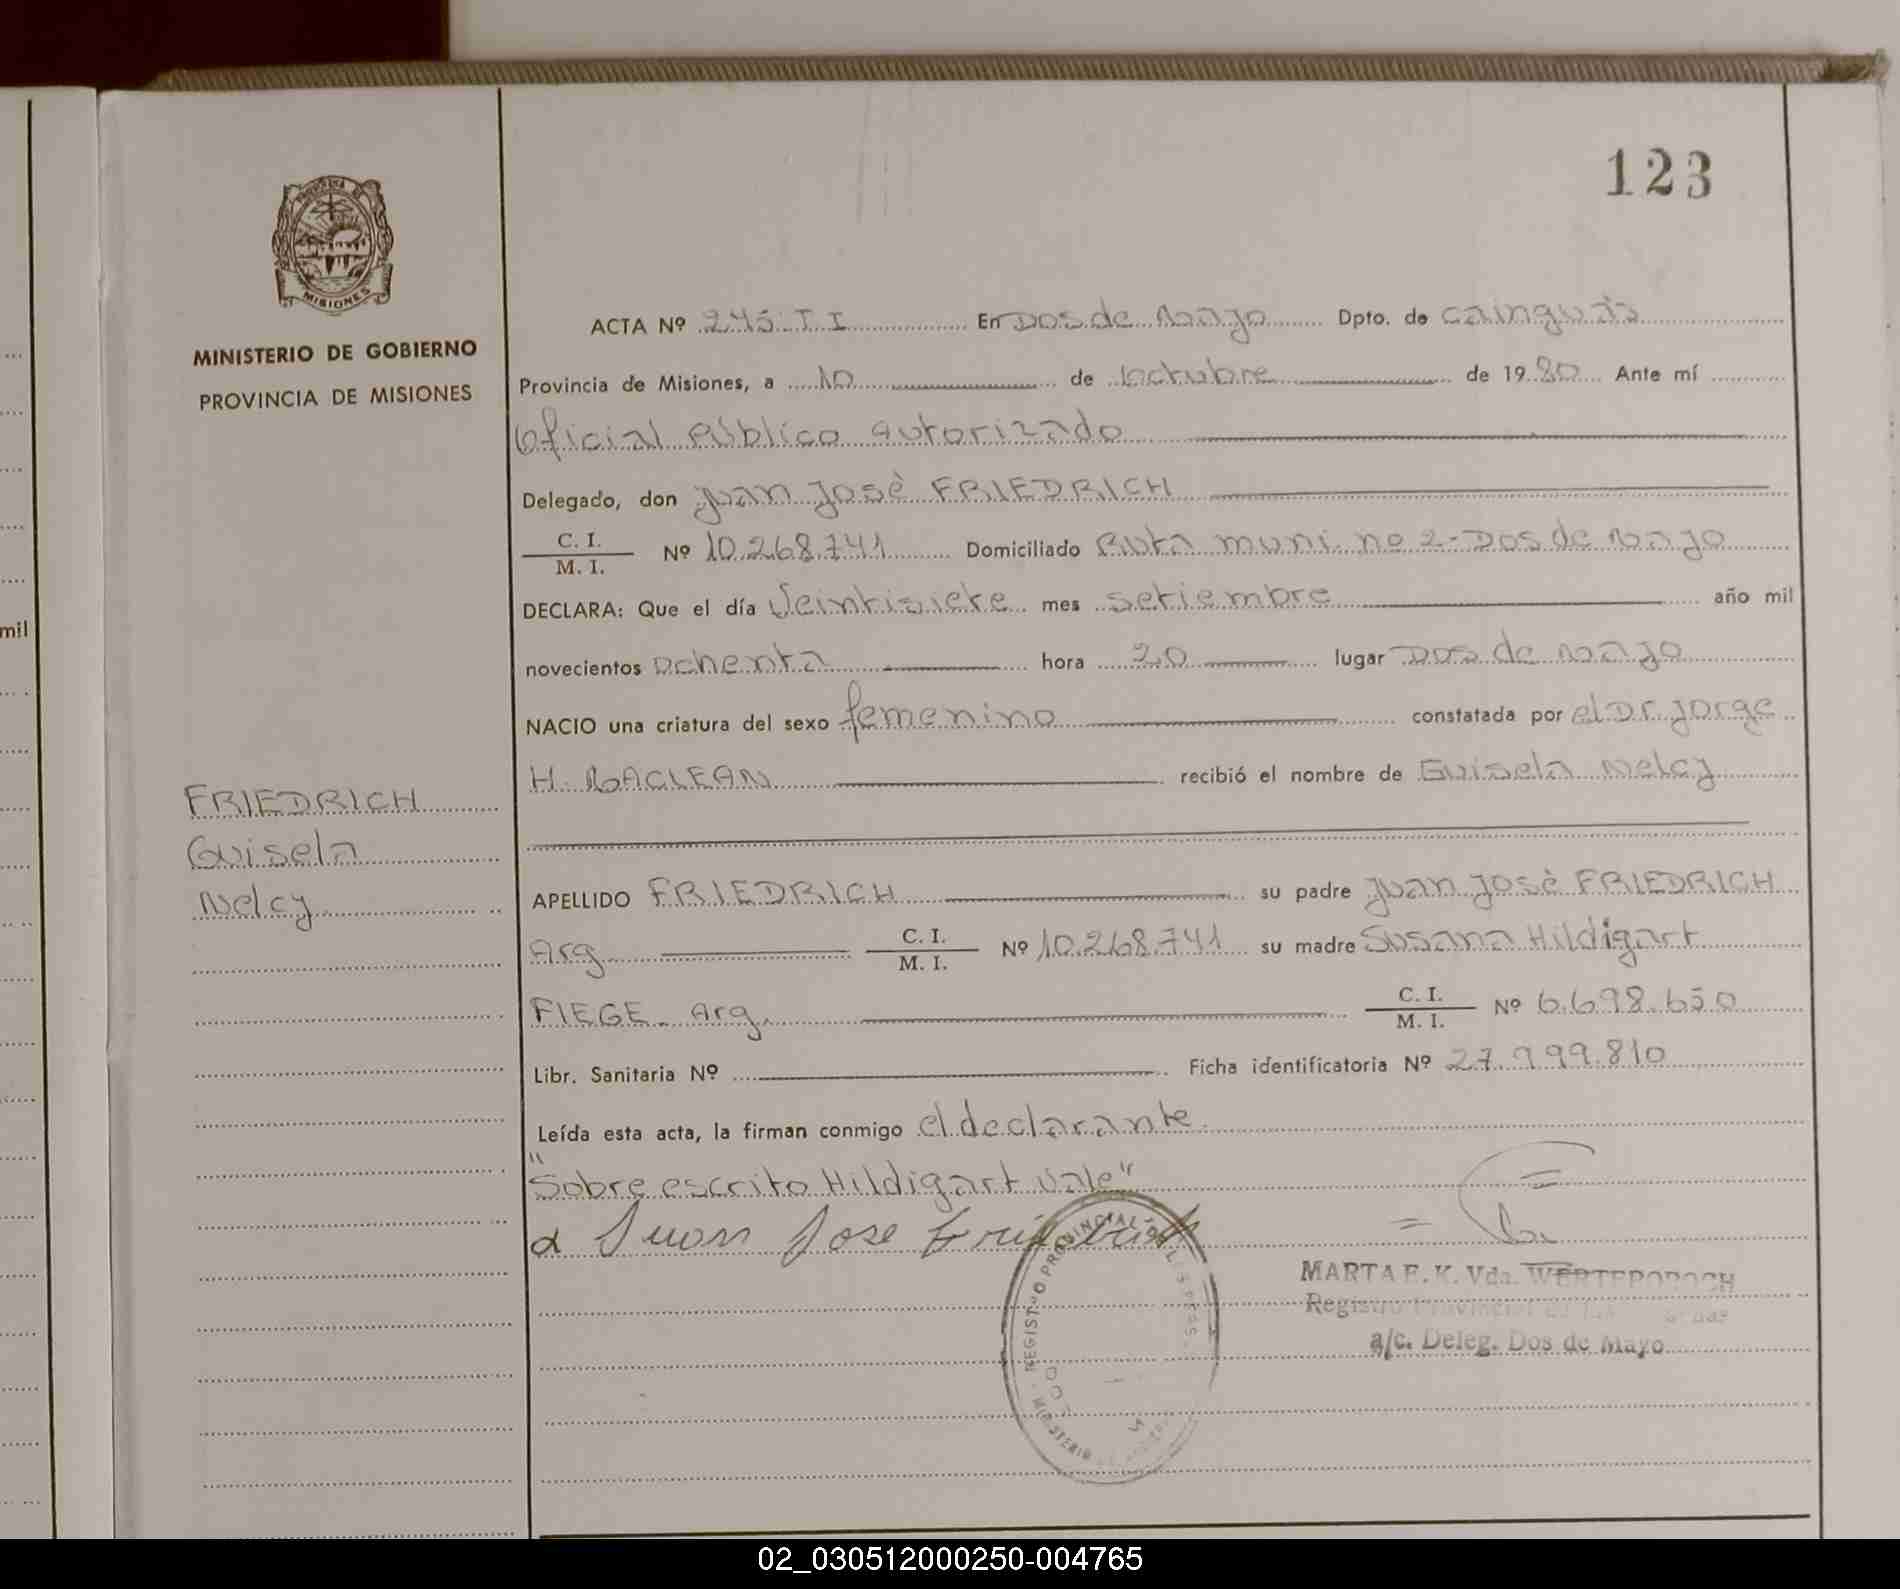 123
PROVINCIA DE
MISIONES
MINISTERIO DE GOBIERNO
PROVINCIA DE MISIONES
ACTA Nº 245 T I En Dos de Mayo Dpto. de Cainguás
Provincia de Misiones, a 10 de Octubre de 1980 Ante mí
Oficial Público autorizado
Delegado, don Juan José FRIEDRICH
C. I.
M. I. Nº 10.268.741 Domiciliado Ruta muni. no 2-Dos de Mayo
DECLARA: Que el día Veintisiete mes setiembre año mil
novecientos ochenta hora 20 lugar Dos de Mayo
NACIO una criatura del sexo femenino constatada por el Dr. Jorge
H. MACLEAN recibió el nombre de Guisela Nelcy
FRIEDRICH
Guisela
Nelcy
APELLIDO FRIEDRICH su padre Juan José FRIEDRICH
Arg. C. I.
M. I. Nº 10.268.741 su madre Susana Hildigart
FIEGE - Arg. C. I.
M. I. Nº 6.698.650
Libr. Sanitaria Nº Ficha identificatoria Nº 27.999.810
Leída esta acta, la firman conmigo el declarante.
"Sobre escrito Hildigart Vale"
Juan Jose Friedrich
REGISTRO PROVINCIAL
MINISTERIO
MARTA E. K. Vda.
Registro Provincial de las
a/c. Deleg. Dos de Mayo
mil
02_030512000250-004765